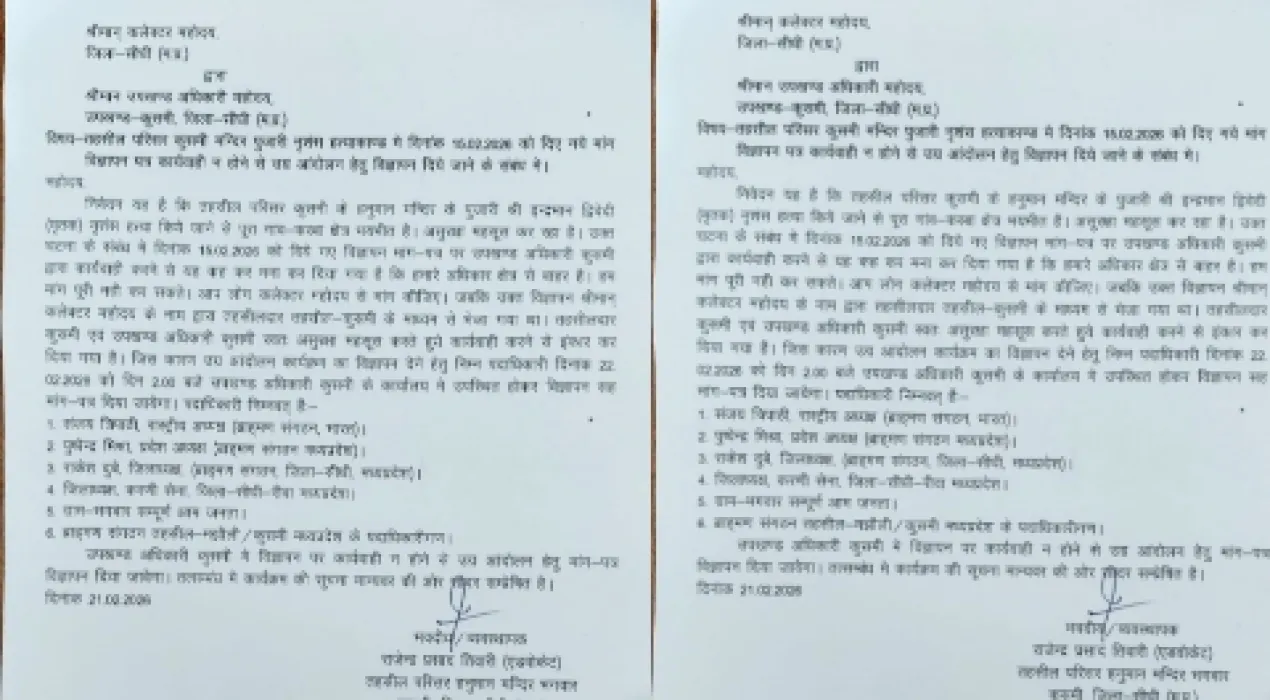 श्रीमान् कलेक्टर महोदय,
जिला-सीधी (म.प्र.)
द्वारा
श्रीमान उपखण्ड अधिकारी महोदय,
उपखण्ड-कुसमी, जिला-सीधी (म.प्र.)
विषय-तहसील परिसर कुसमी मन्दिर पुजारी नृशंस हत्याकाण्ड मे दिनांक 15.02.2026 को दिए गये मांग
विज्ञापन पत्र कार्यवाही न होने से उग्र आंदोलन हेतु विज्ञापन दिये जाने के संबंध मे।
महोदय,
निवेदन यह है कि तहसील परिसर कुसमी के हनुमान मन्दिर के पुजारी श्री इन्द्रभान द्विवेदी
(मृतक) नृशंस हत्या किये जाने से पूरा गांव-कस्बा क्षेत्र भयभीत है। असुरक्षा महसूस कर रहा है। उक्त
घटना के संबंध मे दिनांक 15.02.2026 को दिये गए विज्ञापन मांग-पत्र पर उपखण्ड अधिकारी कुसमी
द्वारा कार्यवाही करने से यह कह कर मना कर दिया गया है कि हमारे अधिकार क्षेत्र से बाहर है। हम
मांग पूरी नही कर सकते। आप लोग कलेक्टर महोदय से मांग कीजिए। जबकि उक्त विज्ञापन श्रीमान
कलेक्टर महोदय के नाम द्वारा तहसीलदार तहसील-कुसमी के माध्यम से भेजा गया था। तहसीलदार
कुसमी एवं उपखण्ड अधिकारी कुसमी स्वतः असुरक्षा महसूस करते हुये कार्यवाही करने से इंकार कर
दिया गया है। जिस कारण उग्र आंदोलन कार्यक्रम का विज्ञापन देने हेतु निम्न पदाधिकारी दिनांक 22.
02.2026 को दिन 2.00 बजे उपखण्ड अधिकारी कुसमी के कार्यालय मे उपस्थित होकर विज्ञापन सह
मांग-पत्र दिया जायेगा। पदाधिकारी निम्नवत् है:-
1. संजय त्रिपाठी, राष्ट्रीय अध्यक्ष (ब्राह्मण संगठन, भारत)।
2. पुष्पेन्द्र मिश्रा, प्रदेश अध्यक्ष (ब्राह्मण संगठन मध्यप्रदेश)।
3. राकेश दुबे, जिलाध्यक्ष, (ब्राह्मण संगठन, जिला-सीधी, मध्यप्रदेश)।
4. जिलाध्यक्ष, करणी सेना, जिला-सीधी-रीवा मध्यप्रदेश।
5. ग्राम-भगवार सम्पूर्ण आम जनता।
6. ब्राह्मण संगठन तहसील-मझौली/कुसमी मध्यप्रदेश के पदाधिकारीगण।
उपखण्ड अधिकारी कुसमी मे विज्ञापन पर कार्यवाही न होने से उग्र आंदोलन हेतु मांग-पत्र
विज्ञापन दिया जायेगा। तत्सम्बंध मे कार्यक्रम की सूचना मान्यवर की ओर सादर सम्प्रेषित है।
दिनांक 21.02.2026
भवदीय/व्यवस्थापक
राजेन्द्र प्रसाद तिवारी (एडवोकेट)
तहसील परिसर हनुमान मन्दिर भगवार
श्रीमान् कलेक्टर महोदय,
जिला-सीधी (म.प्र.)
द्वारा
श्रीमान उपखण्ड अधिकारी महोदय,
उपखण्ड-कुसमी, जिला-सीधी (म.प्र.)
विषय-तहसील परिसर कुसमी मन्दिर पुजारी नृशंस हत्याकाण्ड मे दिनांक 15.02.2026 को दिए गये मांग
विज्ञापन पत्र कार्यवाही न होने से उग्र आंदोलन हेतु विज्ञापन दिये जाने के संबंध मे।
महोदय,
निवेदन यह है कि तहसील परिसर कुसमी के हनुमान मन्दिर के पुजारी श्री इन्द्रभान द्विवेदी
(मृतक) नृशंस हत्या किये जाने से पूरा गांव-कस्बा क्षेत्र भयभीत है। असुरक्षा महसूस कर रहा है। उक्त
घटना के संबंध मे दिनांक 15.02.2026 को दिये गए विज्ञापन मांग-पत्र पर उपखण्ड अधिकारी कुसमी
द्वारा कार्यवाही करने से यह कह कर मना कर दिया गया है कि हमारे अधिकार क्षेत्र से बाहर है। हम
मांग पूरी नही कर सकते। आप लोग कलेक्टर महोदय से मांग कीजिए। जबकि उक्त विज्ञापन श्रीमान
कलेक्टर महोदय के नाम द्वारा तहसीलदार तहसील-कुसमी के माध्यम से भेजा गया था। तहसीलदार
कुसमी एवं उपखण्ड अधिकारी कुसमी स्वतः असुरक्षा महसूस करते हुये कार्यवाही करने से इंकार कर
दिया गया है। जिस कारण उग्र आंदोलन कार्यक्रम का विज्ञापन देने हेतु निम्न पदाधिकारी दिनांक 22.
02.2026 को दिन 2.00 बजे उपखण्ड अधिकारी कुसमी के कार्यालय मे उपस्थित होकर विज्ञापन सह
मांग-पत्र दिया जायेगा। पदाधिकारी निम्नवत् है:-
1. संजय त्रिपाठी, राष्ट्रीय अध्यक्ष (ब्राह्मण संगठन, भारत)।
2. पुष्पेन्द्र मिश्रा, प्रदेश अध्यक्ष (ब्राह्मण संगठन मध्यप्रदेश)।
3. राकेश दुबे, जिलाध्यक्ष, (ब्राह्मण संगठन, जिला-सीधी, मध्यप्रदेश)।
4. जिलाध्यक्ष, करणी सेना, जिला-सीधी-रीवा मध्यप्रदेश।
5. ग्राम-भगवार सम्पूर्ण आम जनता।
6. ब्राह्मण संगठन तहसील-मझौली/कुसमी मध्यप्रदेश के पदाधिकारीगण।
उपखण्ड अधिकारी कुसमी मे विज्ञापन पर कार्यवाही न होने से उग्र आंदोलन हेतु मांग-पत्र
विज्ञापन दिया जायेगा। तत्सम्बंध मे कार्यक्रम की सूचना मान्यवर की ओर सादर सम्प्रेषित है।
दिनांक 21.02.2026
भवदीय/व्यवस्थापक
राजेन्द्र प्रसाद तिवारी (एडवोकेट)
तहसील परिसर हनुमान मन्दिर भगवार
कुसमी जिला-सीधी (म.प्र.)